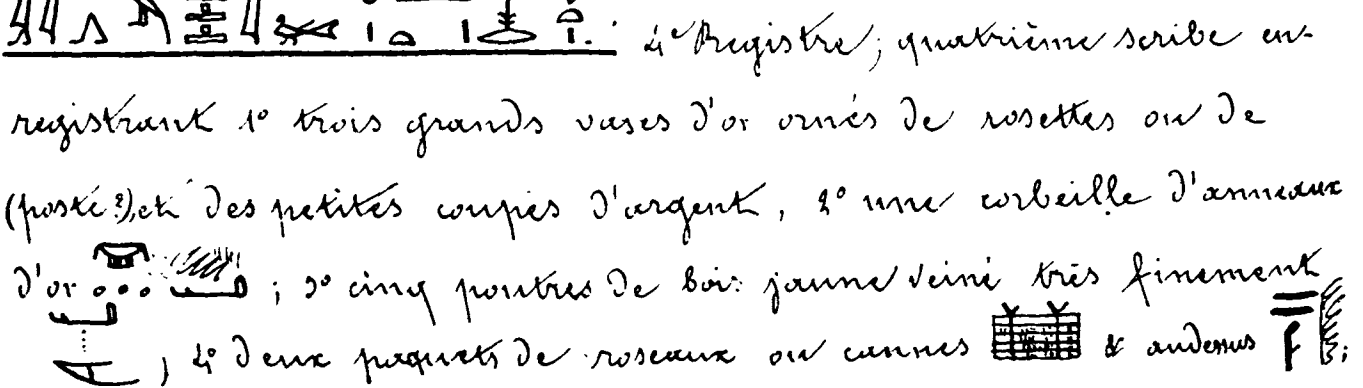 4º Registre; quatrième scribe en-
registrant 1º trois grands vases d'or ornés de rosettes ou de
(posté?), et des petites coupes d'argent, 2º une corbeille d'anneaux
d'or ; 3º cinq poutres de bois jaune veiné très finement
, 4º deux paquets de roseaux ou cannes & audessus ;